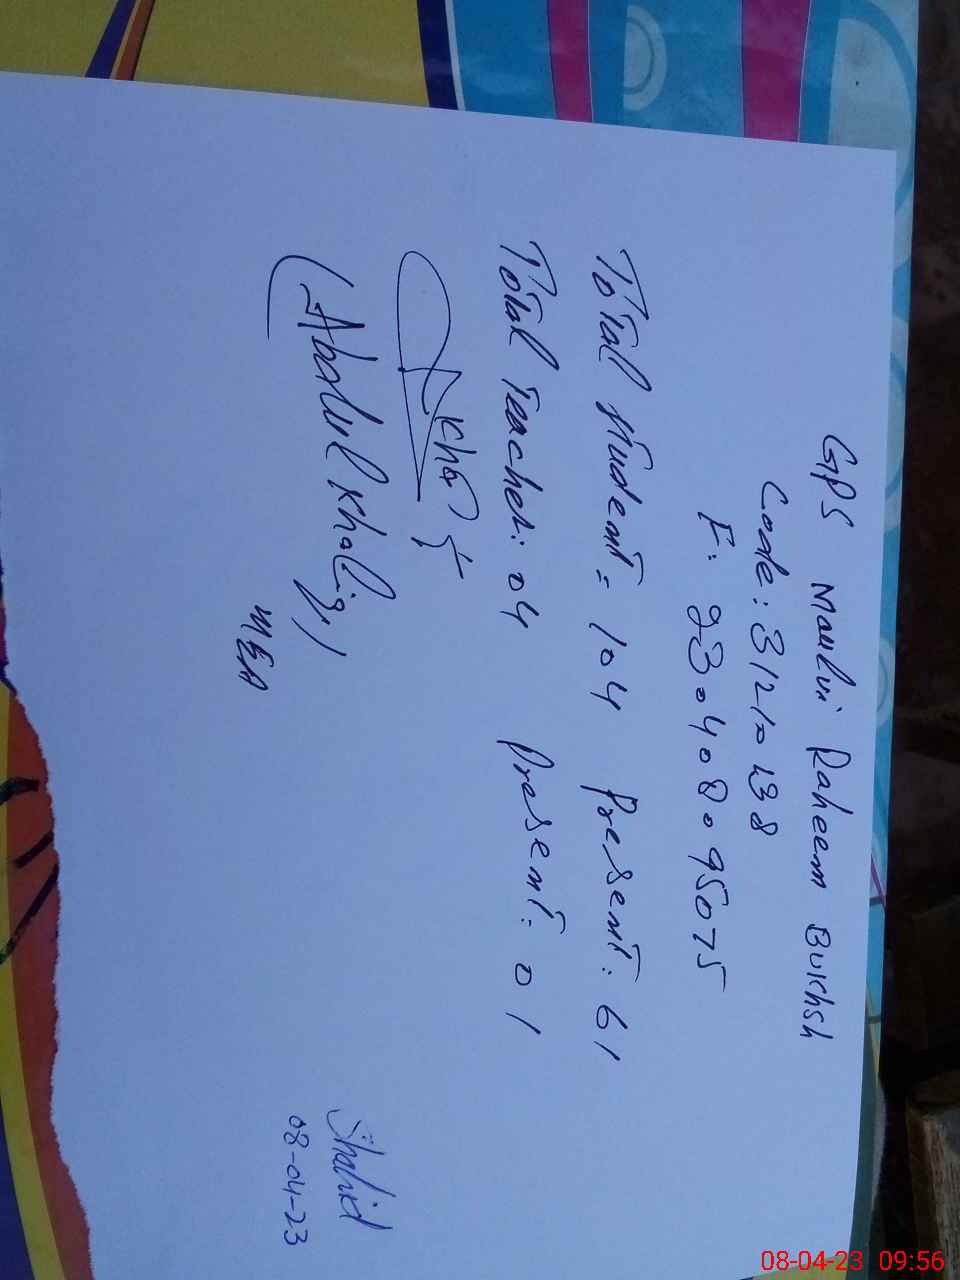 GPS Maulvi Raheem Bukhsh
Code: 31210138
F. 9230408095075
Total student = 104 Present: 61
Total Teacher: 04 Present: 01
(Abdul Khaliq)
MEA
Shahid
08-04-23
08-04-23 09:56